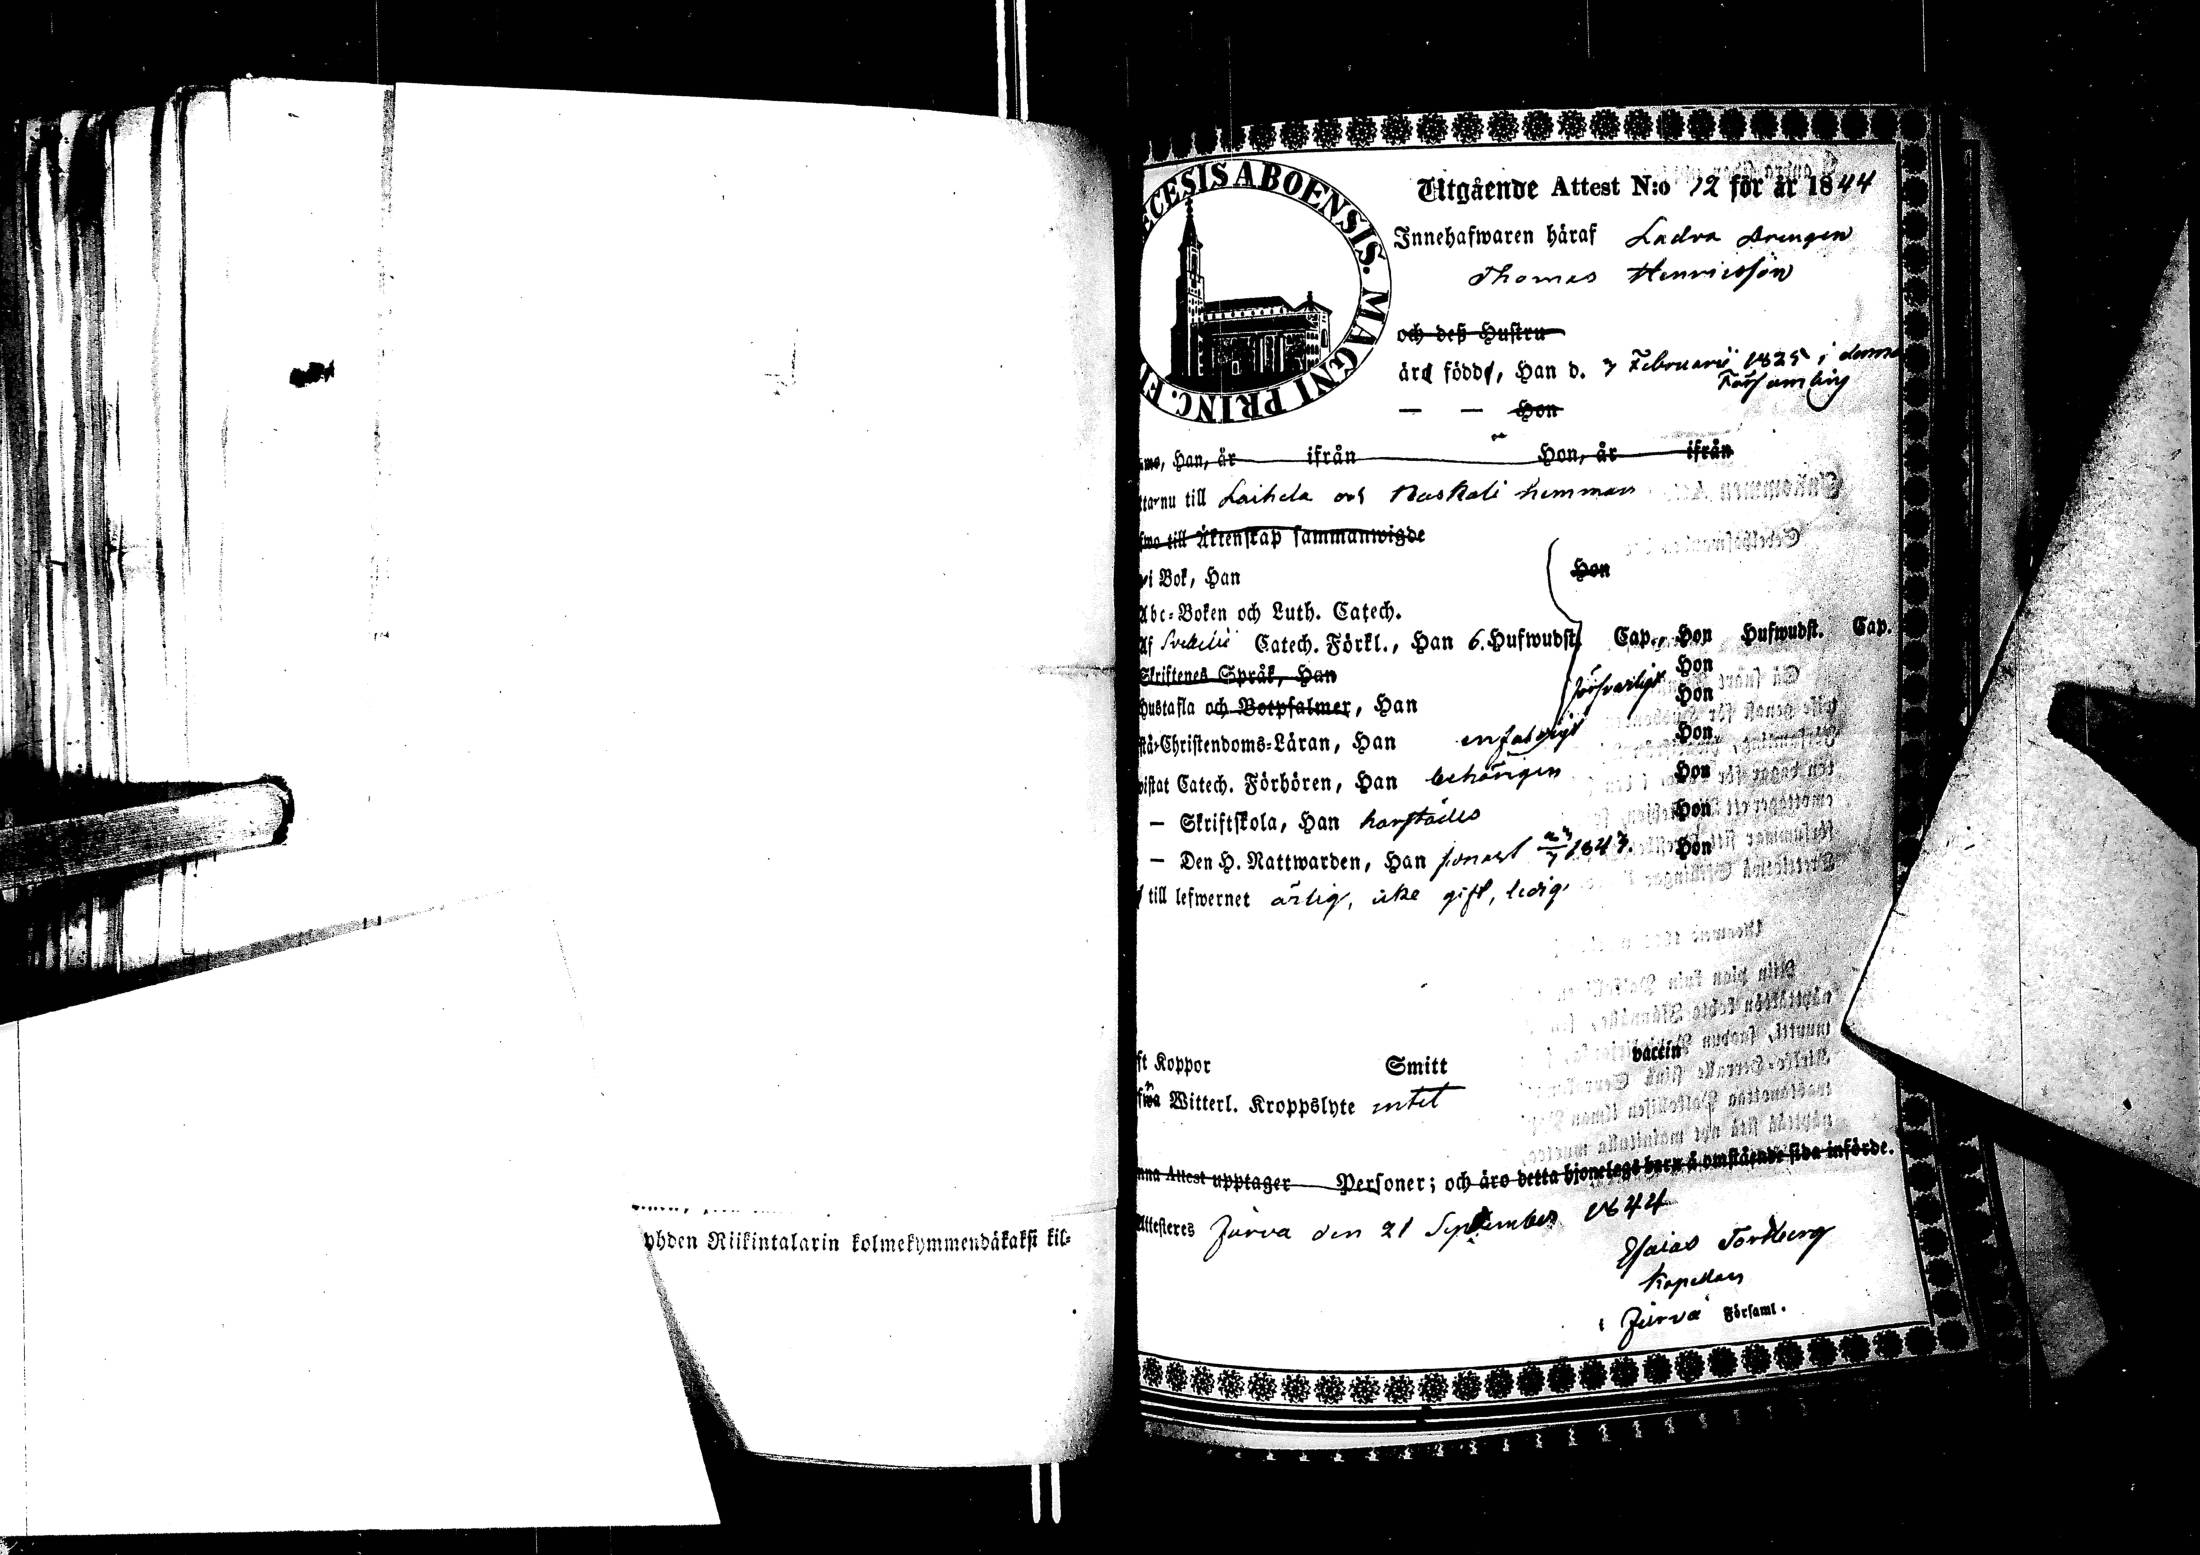 yhden Riikintalarin kolmekymmendäkaksi kil-
ECESIS ABOENSIS. MAGNI PRINC. FI
Utgående Attest N:o 12 för år 1844
Innehafwaren häraf Ladra Drengen
Thomas Henricsson
och deß Hustru
är född, Han d. 7 Februarii 1825 i denna
Församling
— — Hon
Han, är ifrån Hon, är ifrån
nu till Laihela och Kuskali hemman
till Äktenskap sammanwigde
i Bok, Han Hon
Abc-Boken och Luth. Catech.
Af Svebilii Catech. Förkl., Han 6. Hufwudst. Cap., Hon Hufwudst. Cap.
Skriftenes Språk, Han Hon
Hustafla och Botpsalmer, Han försvarligt Hon
Christendoms-Läran, Han enfaldigt Hon
wistat Catech. Förhören, Han behörigen Hon
— Skriftskola, Han härstädes Hon
— Den H. Nattwarden, Han senast 23/7 1843. Hon
till lefwernet ärlig, icke gift, ledig.
ft Koppor Smitt vaccin
Witterl. Kroppslyte intet
nna Attest upptager Personer; och äro detta hjonelags barn å omstående sida införde.
Attesteres Jurva den 21 September 1844
Esaias Forsberg
Kapellan
i Jurva Församl.